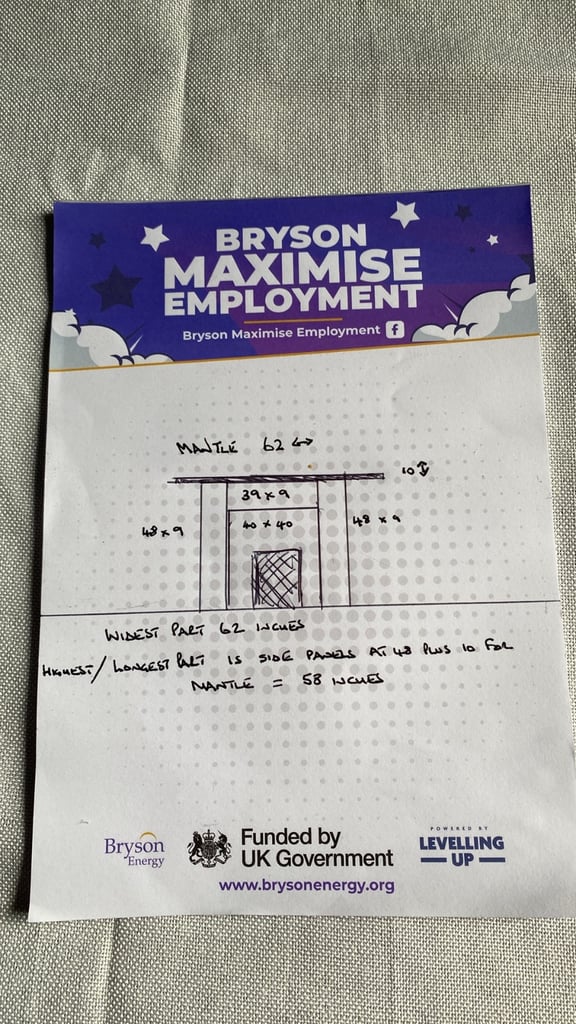 BRYSON
MAXIMISE
EMPLOYMENT
Bryson Maximise Employment f
MANTLE 62 ↔
10 ↕
39 x 9
48 x 9
40 x 40
48 x 9
WIDEST PART 62 INCHES
HIGHEST/LONGEST PART IS SIDE PANELS AT 48 PLUS 10 FOR
MANTLE = 58 INCHES
Bryson
Energy
Funded by
UK Government
POWERED BY
LEVELLING
UP
www.brysonenergy.org